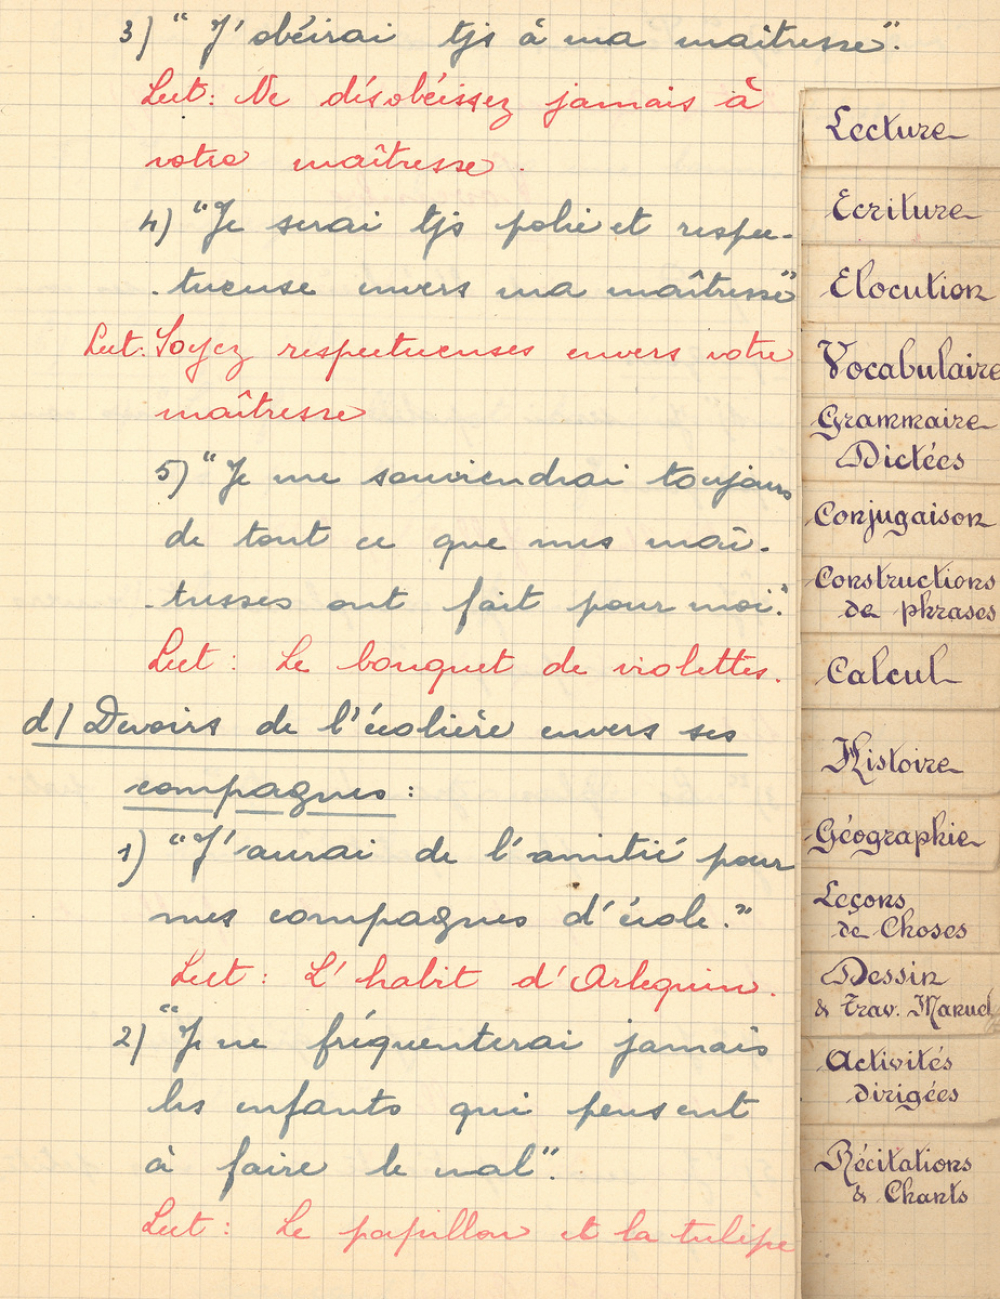 3) " J'obéirai tjs à ma maîtresse".
Lect: Ne désobéissez jamais à
votre maîtresse.
4) "Je serai tjs polie et respec-
-tueuse envers ma maîtresse"
Lect: Soyez respectueuses envers votre
maîtresse
5) "Je me souviendrai toujours
de tout ce que mes maî-
-tresses ont fait pour moi".
Lect : Le bouquet de violettes.
d) Devoirs de l'écolière envers ses
compagnes :
1) "J'aurai de l'amitié pour
mes compagnes d'école."
Lect : L'habit d'Arlequin.
2) "Je ne fréquenterai jamais
les enfants qui pensent
à faire le mal".
Lect : Le papillon et la tulipe
Lecture
Ecriture
Elocution
Vocabulaire
Grammaire
Dictées
Conjugaison
Constructions
de phrases
Calcul
Histoire
Géographie
Leçons
de Choses
Dessin
& Trav. Manuel
Activités
dirigées
Récitations
& Chants